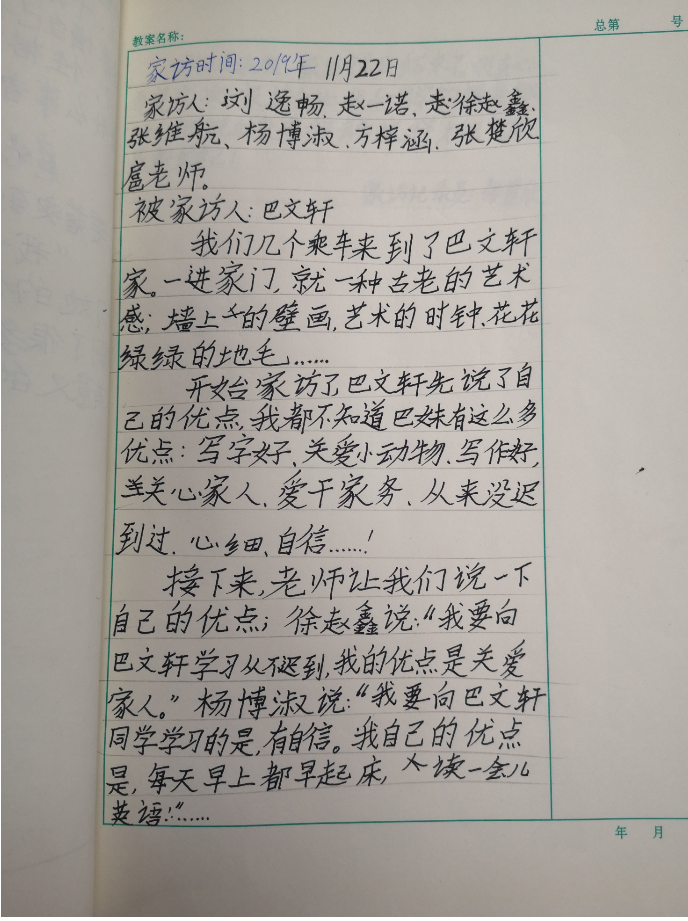 总第 号
教案名称：
家访时间：2019年 11月22日
家访人：刘逸畅、赵一诺、赵徐赵鑫、
张维航、杨博淑、方梓涵、张楚欣
扈老师。
被家访人：巴文轩
我们几个乘车来到了巴文轩
家。一进家门，就一种古老的艺术
感；墙上的壁画，艺术的时钟、花花
绿绿的地毛……
开始家访了巴文轩先说了自
己的优点，我都不知道巴妹有这么多
优点：写字好、关爱小动物、写作好，
关心家人、爱干家务、从来没迟
到过、心细、自信……！
接下来，老师让我们说一下
自己的优点；徐赵鑫说：“我要向
巴文轩学习从不迟到，我的优点是关爱
家人。”杨博淑说：“我要向巴文轩
同学学习的是，有自信。我自己的优点
是，每天早上都早起床，读一会儿
英语！”……
年 月